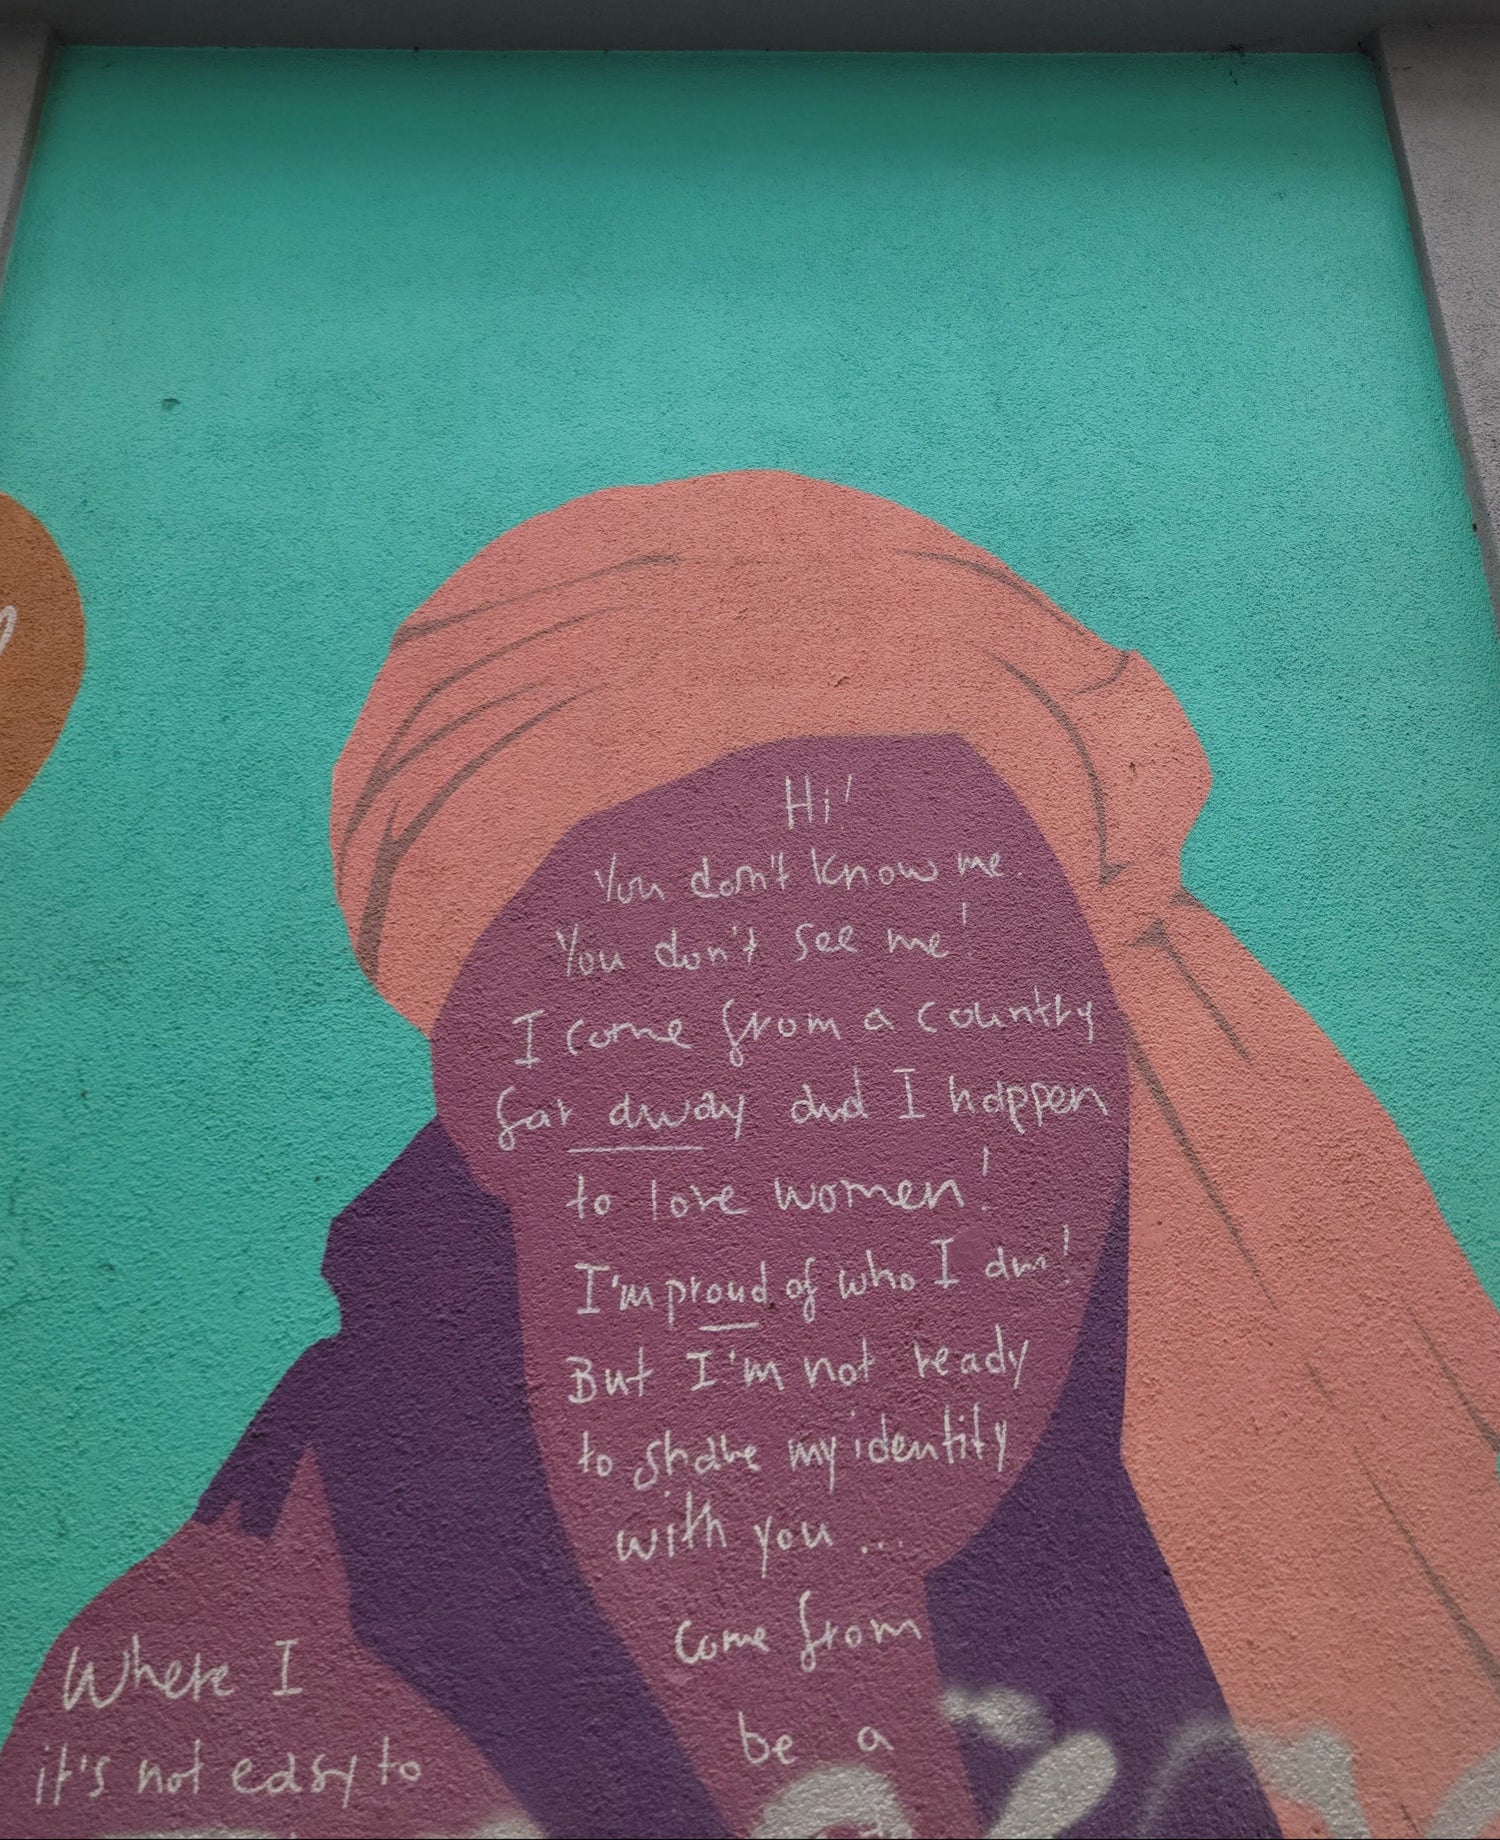 Hi!
You don't know me.
You don't see me!
I come from a country
far away and I happen
to love women!
I'm proud of who I am!
But I'm not ready
to share my identity
with you ...
Where I come from
it's not easy to be a